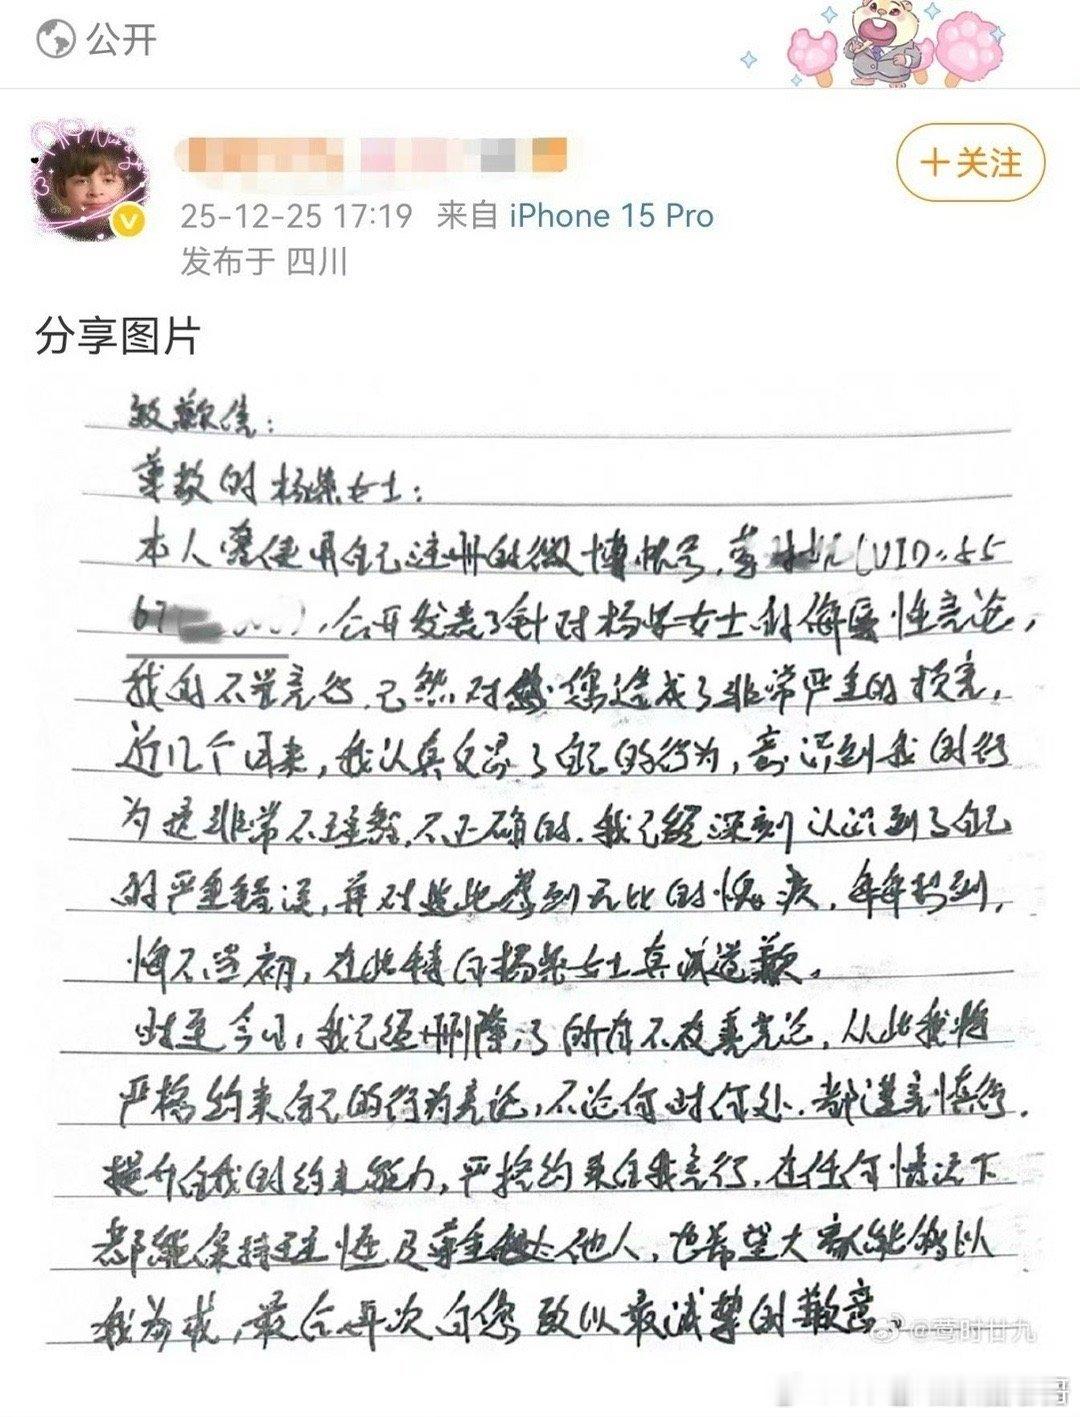 公开
+关注
25-12-25 17:19 来自 iPhone 15 Pro
发布于 四川
分享图片
致歉信：
尊敬的杨紫女士：
本人曾使用自己注册的微博帐号，(UID:55
67 )，公开发表了针对杨紫女士的侮辱性言论，
我的不当言行，已然对您造成了非常严重的损害，
近几个月来，我认真反思了自己的行为，意识到我的行
为是非常不理智，不正确的，我已经深刻认识到了自己
的严重错误，并对此感到无比的愧疚，每每想到，
悔不当初，在此特向杨紫女士真诚道歉。
时至今日，我已经删除了所有不友善言论，从此我将
严格约束自己的行为言论，不论何时何处，都谨言慎行，
提升自我的约束能力，严格约束自我言行，在任何情况下
都能保持理性及尊重他人，也希望大家能够以
我为戒，最后再次向您致以最诚挚的歉意。
@莺时廿九